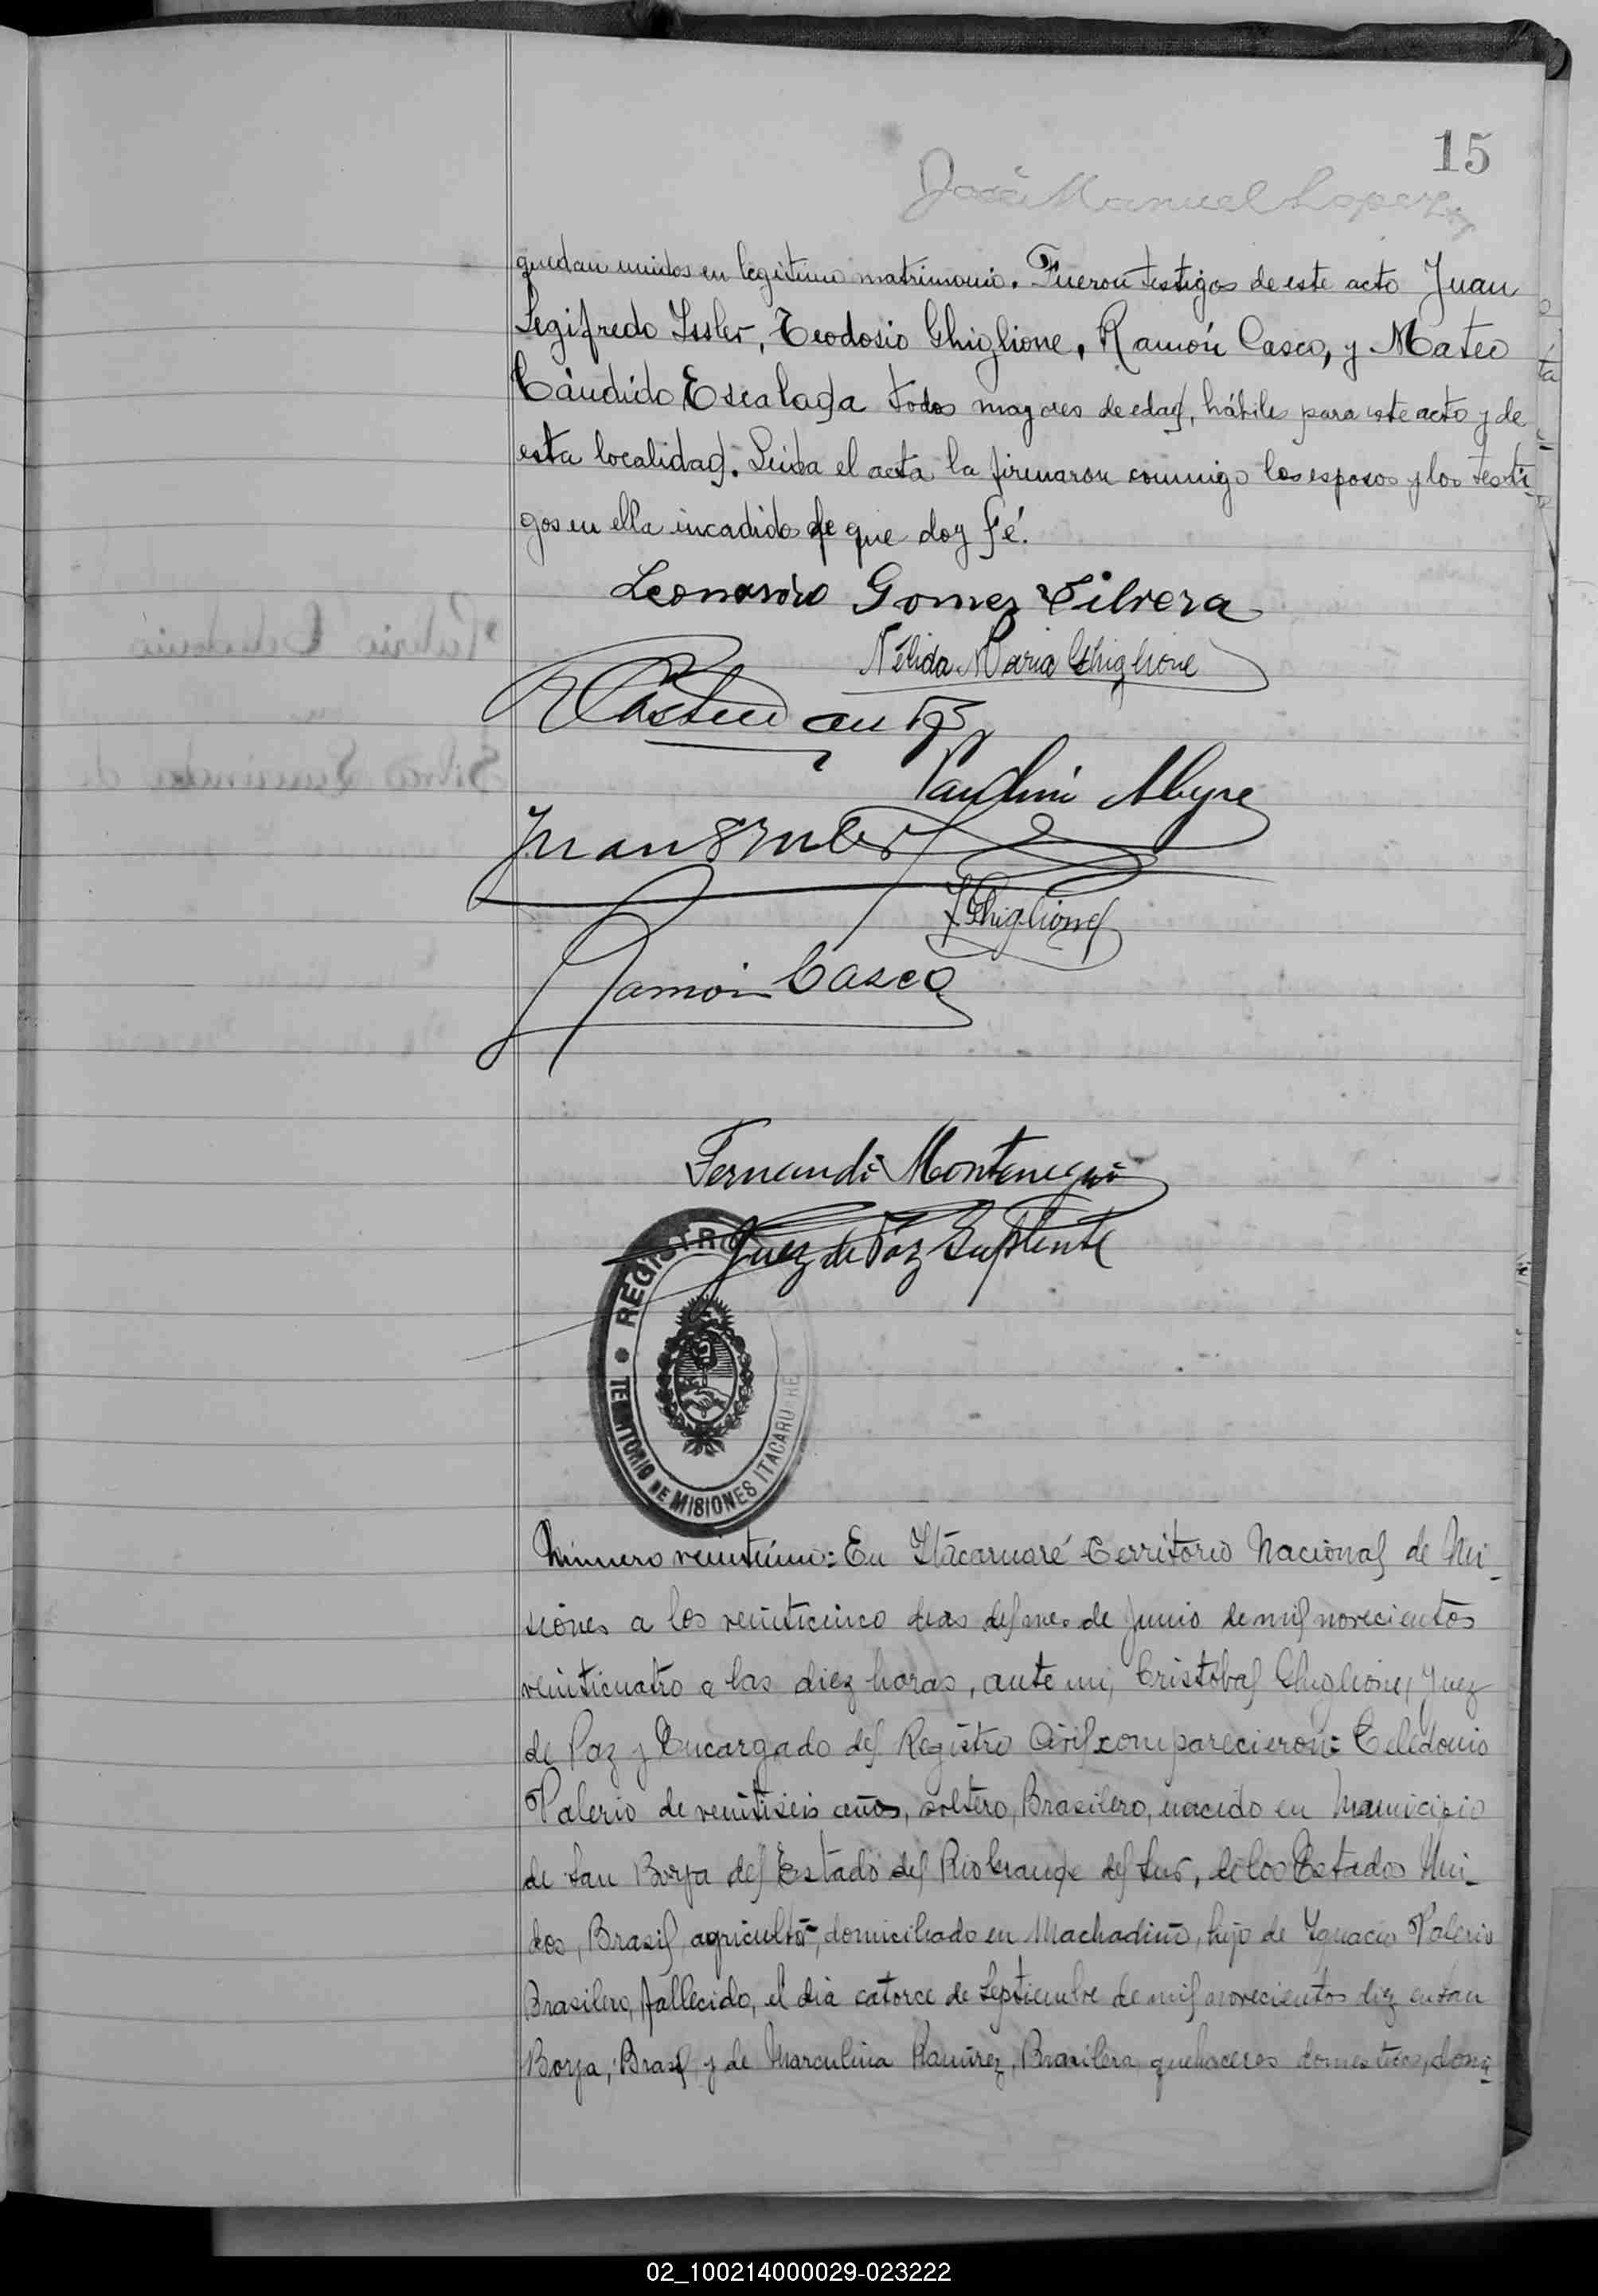 15
José Manuel Lopez
quedan unidos en legitimo matrimonio. Fueron testigos de este acto Juan
Segifredo Issler, Teodosio Ghiglione, Ramón Casco, y Mateo
Cándido Escalada todos mayores de edad, hábiles para este acto y de
esta localidad. Leida el acta la firmaron conmigo los esposos y los testi-
gos en ella incadido de que doy fé.
Leonardo Gomez Silvera
Nélida Maria Ghiglione
Juan S
T Ghiglione
Ramón Casco
Fernando Montenegro
Juez de Paz Suplente
REGISTRO
TERRITORIO DE MISIONES ITACARUARE
Número veintiuno: En Itacaruaré Territorio Nacional de Mi-
siones a los veinticinco dias del mes de Junio de mil novecientos
veinticuatro a las diez horas, ante mi, Cristobal Ghiglione, Juez
de Paz y Encargado del Registro Civil comparecieron: Celedonio
Valerio de veintiseis años, soltero, Brasilero, nacido en Municipio
de San Borja del Estado del Rio Grande del Sur, de los Estados Uni-
dos, Brasil, agricultor, domiciliado en Machadiño, hijo de Ignacio Valerio
Brasilero, fallecido, el dia catorce de Septiembre de mil novecientos diez en San
Borja, Brasil y de Marculina Ramirez, Brasilera, quehaceres domesticos, domi-
02_100214000029-023222